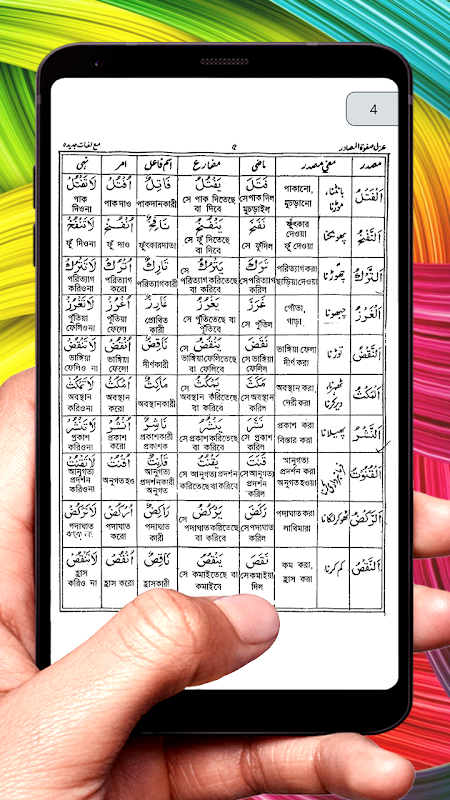 4
عربی صفوة المصادر ۵ مع لغات جدیدہ
مصدر معنیٔ مصدر ماضی مضارع اسم فاعل امر نہی
اَلْفَتْلُ بانٹنا، موڑنا পাকানো, মুচড়ানো فَتَلَ সে পাক দিল মুচড়াইল يَفْتُلُ সে পাক দিতেছে বা দিবে فَاتِلٌ পাকদানকারী اُفْتُلْ পাক দাও لَاتَفْتُلْ পাক দিওনা
اَلنَّفْخُ پھونکنا ফুঁৎকার দেওয়া ফুঁ দেওয়া نَفَخَ সে ফুঁদিল يَنْفُخُ সে ফুঁ দিতেছে বা দিবে نَافِخٌ ফুঁৎকারদাতা اُنْفُخْ ফুঁ দাও لَاتَنْفُخْ ফুঁ দিওনা
اَلتَّرْكُ چھوڑنا পরিত্যাগ করা ছাড়িয়া দেওয়া تَرَكَ সে পরিত্যাগ করিল يَتْرُكُ সে পরিত্যাগ করিতেছে বা করিবে تَارِكٌ পরিত্যাগকারী اُتْرُكْ পরিত্যাগ করো لَاتَتْرُكْ পরিত্যাগ করিওনা
اَلْغَرْزُ چبھونا পোঁতা, গাড়া, غَرَزَ সে পুঁতিল يَغْرُزُ সে পুঁতিতেছে বা পুঁতিবে غَارِزٌ প্রোথিত কারী اُغْرُزْ পুঁতিয়া ফেলো لَاتَغْرُزْ পুঁতিয়া ফেলিওনা
اَلنَّقْضُ توڑنا ভাঙ্গিয়া ফেলা দীর্ণ করা نَقَضَ সে ভাঙ্গিয়া ফেলিল يَنْقُضُ সে ভাঙ্গিয়া ফেলিতেছে বা ফেলিবে نَاقِضٌ দীর্ণকারী اُنْقُضْ ভাঙ্গিয়া ফেলো لَاتَنْقُضْ ভাঙ্গিয়া ফেলিও না
اَلْمَكْثُ ٹھہرنا، دیر کرنا অবস্থান করা, দেরী করা مَكَثَ সে অবস্থান করিল يَمْكُثُ সে অবস্থান করিতেছে বা করিবে مَاكِثٌ অবস্থানকারী اُمْكُثْ অবস্থান করো لَاتَمْكُثْ অবস্থান করিওনা
اَلنَّشْرُ پھیلانا প্রকাশ করা বিস্তার করা نَشَرَ সে প্রকাশ করিল يَنْشُرُ সে প্রকাশ করিতেছে বা করিবে نَاشِرٌ প্রকাশকারী প্রকাশক اُنْشُرْ প্রকাশ করো لَاتَنْشُرْ প্রকাশ করিওনা
اَلْقُنُوْتُ আনুগত্য প্রদর্শন করা অনুগত হওয়া قَنَتَ সে আনুগত্য প্রদর্শন করিল يَقْنُتُ সে আনুগত্য প্রদর্শন করিতেছে বা করিবে قَانِتٌ আনুগত্য প্রদর্শনকারী অনুগত اُقْنُتْ অনুগত হও لَاتَقْنُتْ আনুগত্য প্রদর্শন করিওনা
اَلرَّكْضُ ٹھوکر لگانا পদাঘাত করা লাথি মারা رَكَضَ সে পদাঘাত করিল يَرْكُضُ সে পদাঘাত করিতেছে বা করিবে رَاكِضٌ পদাঘাত কারী اُرْكُضْ পদাঘাত করো لَاتَرْكُضْ পদাঘাত
اَلنَّقْصُ کم کرنا কম করা, হ্রাস করা نَقَصَ সে কমাইয়া দিল يَنْقُصُ সে কমাইতেছে বা কমাইবে نَاقِصٌ হ্রাসকারী اُنْقُصْ হ্রাস করো لَاتَنْقُصْ হ্রাস করিও না